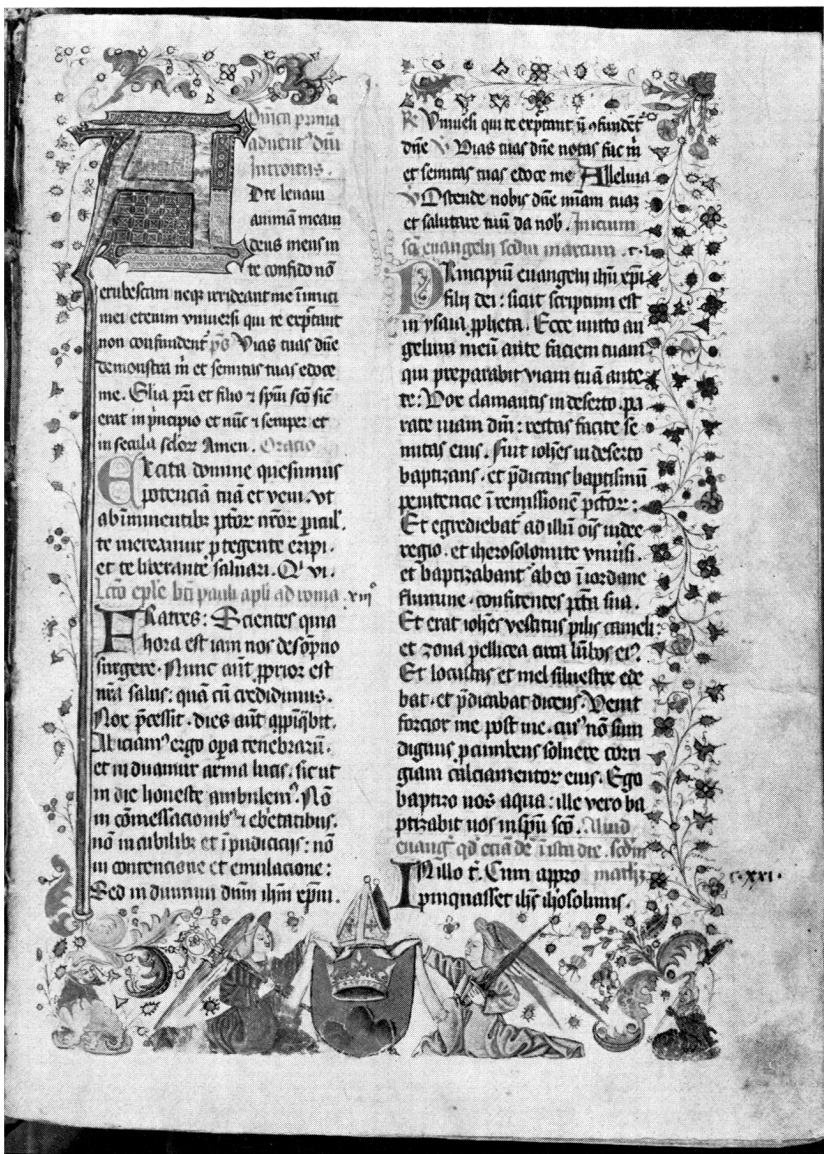 Dnica prima
aduent⁹ dni
Introitus.
A Dte leuaui
animā meam
deus meus in
te confido nō
erubescam neqꝫ irrideant me inimici
mei etenim vniuersi qui te expectant
non confundent᷑ p̄s Vias tuas dn̄e
demonstra m̄ et semitas tuas edoce
me. Glia pr̄i et filio ⁊ spūi scō sic̄
erat in pncipio et nūc ⁊ semper et
in secula seloꝝ Amen. Oracio
Excita domine quesumus
potenciā tuā et veni. vt
ab iminentibꝫ pctoꝝ nr̄oꝝ picul.
te mereamur ptegente eripi.
et te liberante saluari. Q¹ vi.
Lcō eple bti pauli apli ad roma. xiii°
Fratres: Scientes quia
hora est iam nos desopno
surgere. Nunc aūt ꝓprior est
nr̄a salus: quā cū credidimus.
Nox pcessit. dies aūt appiqbit.
Abiciam⁹ ergo opa tenebrarū.
et in duamur arma lucis. sic ut
in die honeste ambulem⁹. Nō
in cōmessacionibꝫ et ebrietatibus.
nō in cubilibꝫ et īpudiciciis: nō
in contencione et emulacione:
Sed in duimini dnm ihm xpm.
R Vniuersi qui te exptant n̄ ꝯfundent᷑
dn̄e V Vias tuas dn̄e notas fac m̄
et semitas tuas edoce me Alleluia
V Ostende nobis dn̄e miam tuaꝫ
et salutare tuū da nob. Inicium
sci euangelii scdm marcum. c. i.
Principiū euangelii ihu xpi
filii dei: sicut scriptum est
in ysaia ꝓpheta. Ecce mitto an
gelum meū ante faciem tuam
qui preparabit viam tuā ante
te: Vox clamantis in deserto. pa
rate uiam dn̄i: rectas facite se
mitas eius. Fuit ioh̄es in deserto
baptizans. et p̄dicans baptismū
penitencie ī remissionē pctoꝝ:
Et egrediebat᷑ ad illū oīs iudee
regio. et iherosolomite vniūsi.
et baptizabant᷑ ab eo ī iordane
flumine. confitentes pctā sua.
Et erat ioh̄es vestitus pilis cameli:
et zona pellicea circa lūbos ei⁹.
Et locustas et mel siluestre ede
bat. et p̄dicabat dicens. Venit
forcior me post me. cui⁹ nō sum
dignus pcumbens soluere corri
giam calciamentoꝝ eius. Ego
baptizo uos aqua: ille vero ba
ptizabit uos inspū scō. Aliud
euang᷑ qd eciā dr̄ ī ista die. scdm
INillo t̄. Cum appro math̄.
pinquasset ihs ihosolimis.
c. xxi.